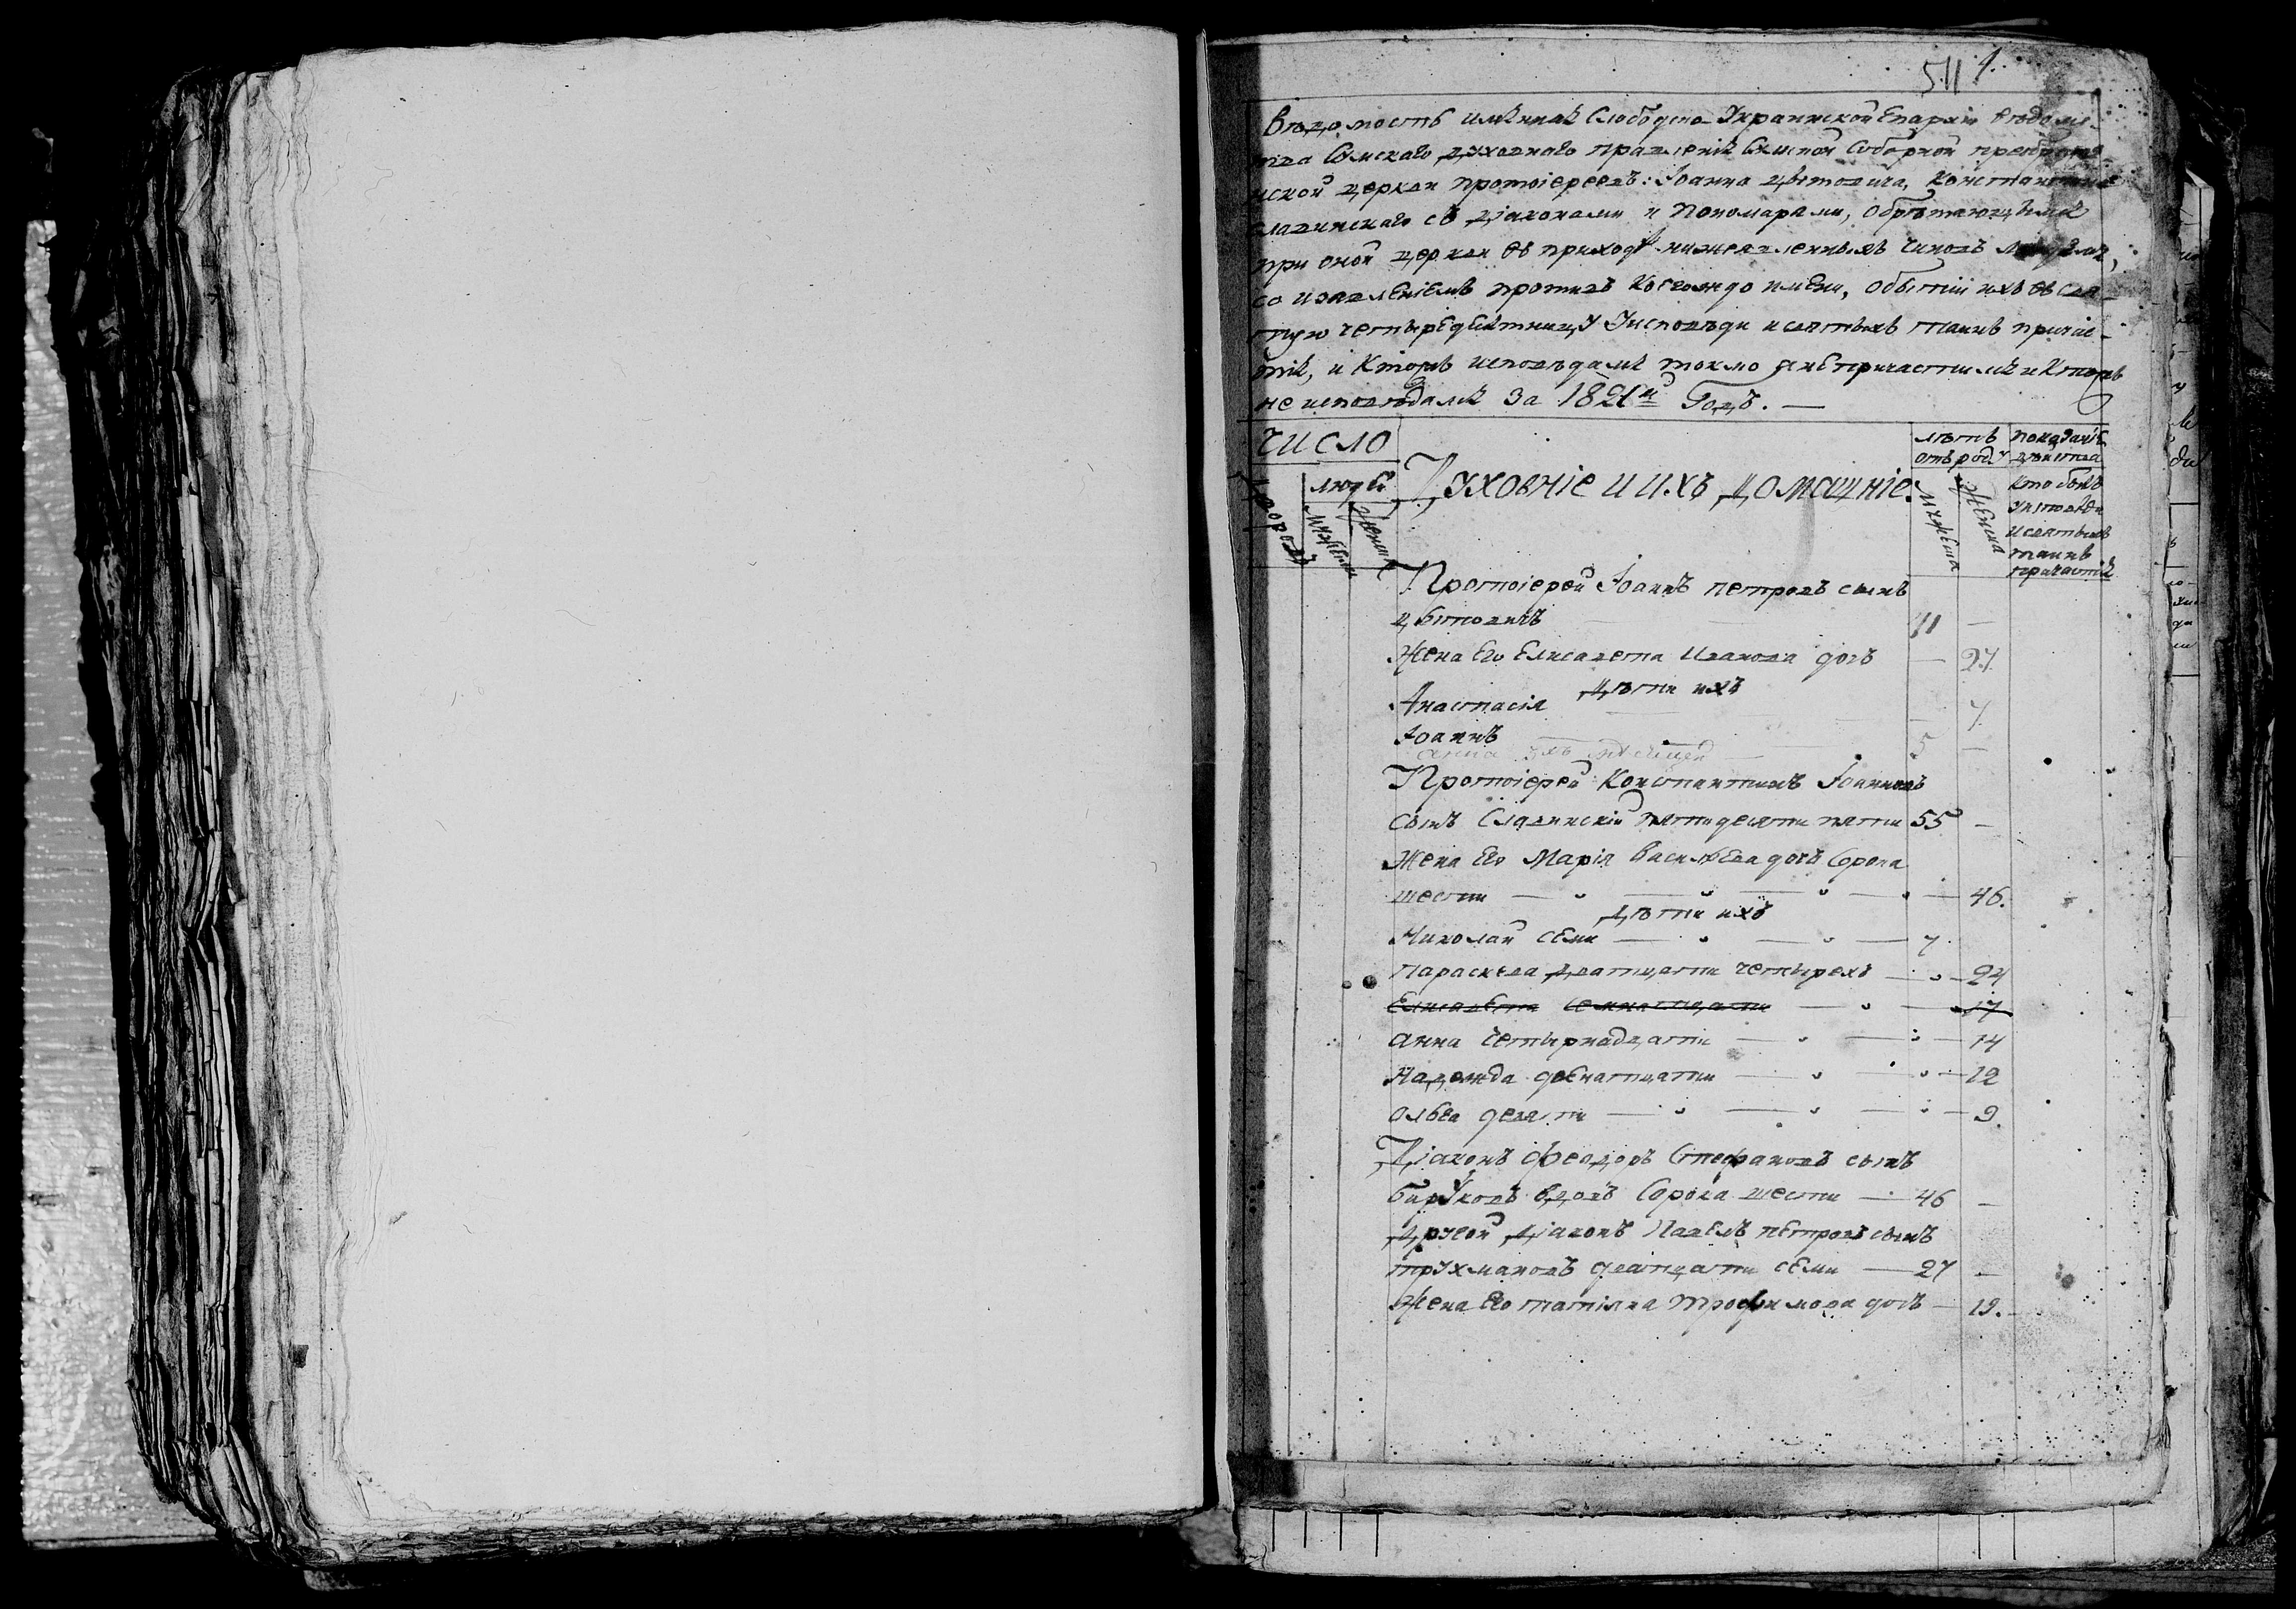 511 1.
Вѣдомость имѣннаѧ Слободско-Украинской Епархіи вѣдомс-
тва Сумскаго духовнаго правленіѧ Сумской Соборной преображе-
нской церкви протоіереевъ: Іоанна Цвѣтовича, Константина
славинскаго съ діаконами и пономарами, обрѣтающимсѧ
при оной церкви въ приходѣ нижеявленныхъ чиновъ людѣмъ,
со изавленіемъ противъ коегождо имени, обытіи ихъ въ свя-
тую четыредесѧтницу Уисповѣди исвятыхъ таинъ причас-
тіѧ, и Кторъ исповѣдалсѧ токмо анепричастилсѧ иКторъ
не исповѣдалсѧ За 1821й Годъ. —
ЧИСЛО
людей
дворовъ
мужеска
женска
Духовніе и ихъ домашніе.
лѣтъ
отъ роду
мужеска
женска
показаніе
дѣйства
кто былъ
уисповѣди
исвятыхъ
таинъ
причастіѧ
Протоіерей Іоаннъ петровъ сынъ
Цвѣтовичъ 41 —
Жена Его Елисавета Иванова дочь — 27
Дѣти ихъ
Анастасія — 7
Іоаннъ 5 —
анна
Протоіерей Константинъ Іоанновъ
сынъ Славинскій пятидесяти пяти 55 —
Жена Его Марія Васильева дочь Сорока
шести — 46.
Дѣти ихъ
Николай семи — 7.
Параскева Дватцати четырехъ — 24
Елисавета Семнатцати — 17
анна Четырнадцати — 14
Надежда двенатцати — 12
Ольга девяти — 9.
Діаконъ Феодоръ Стефановъ сынъ
бируковъ вдовъ Сорока шести — 46 —
Другой Діаконъ Павелъ петровъ сынъ
трухмановъ дватцати семи — 27 —
Жена Его татіяна трофимова дочь — 19.